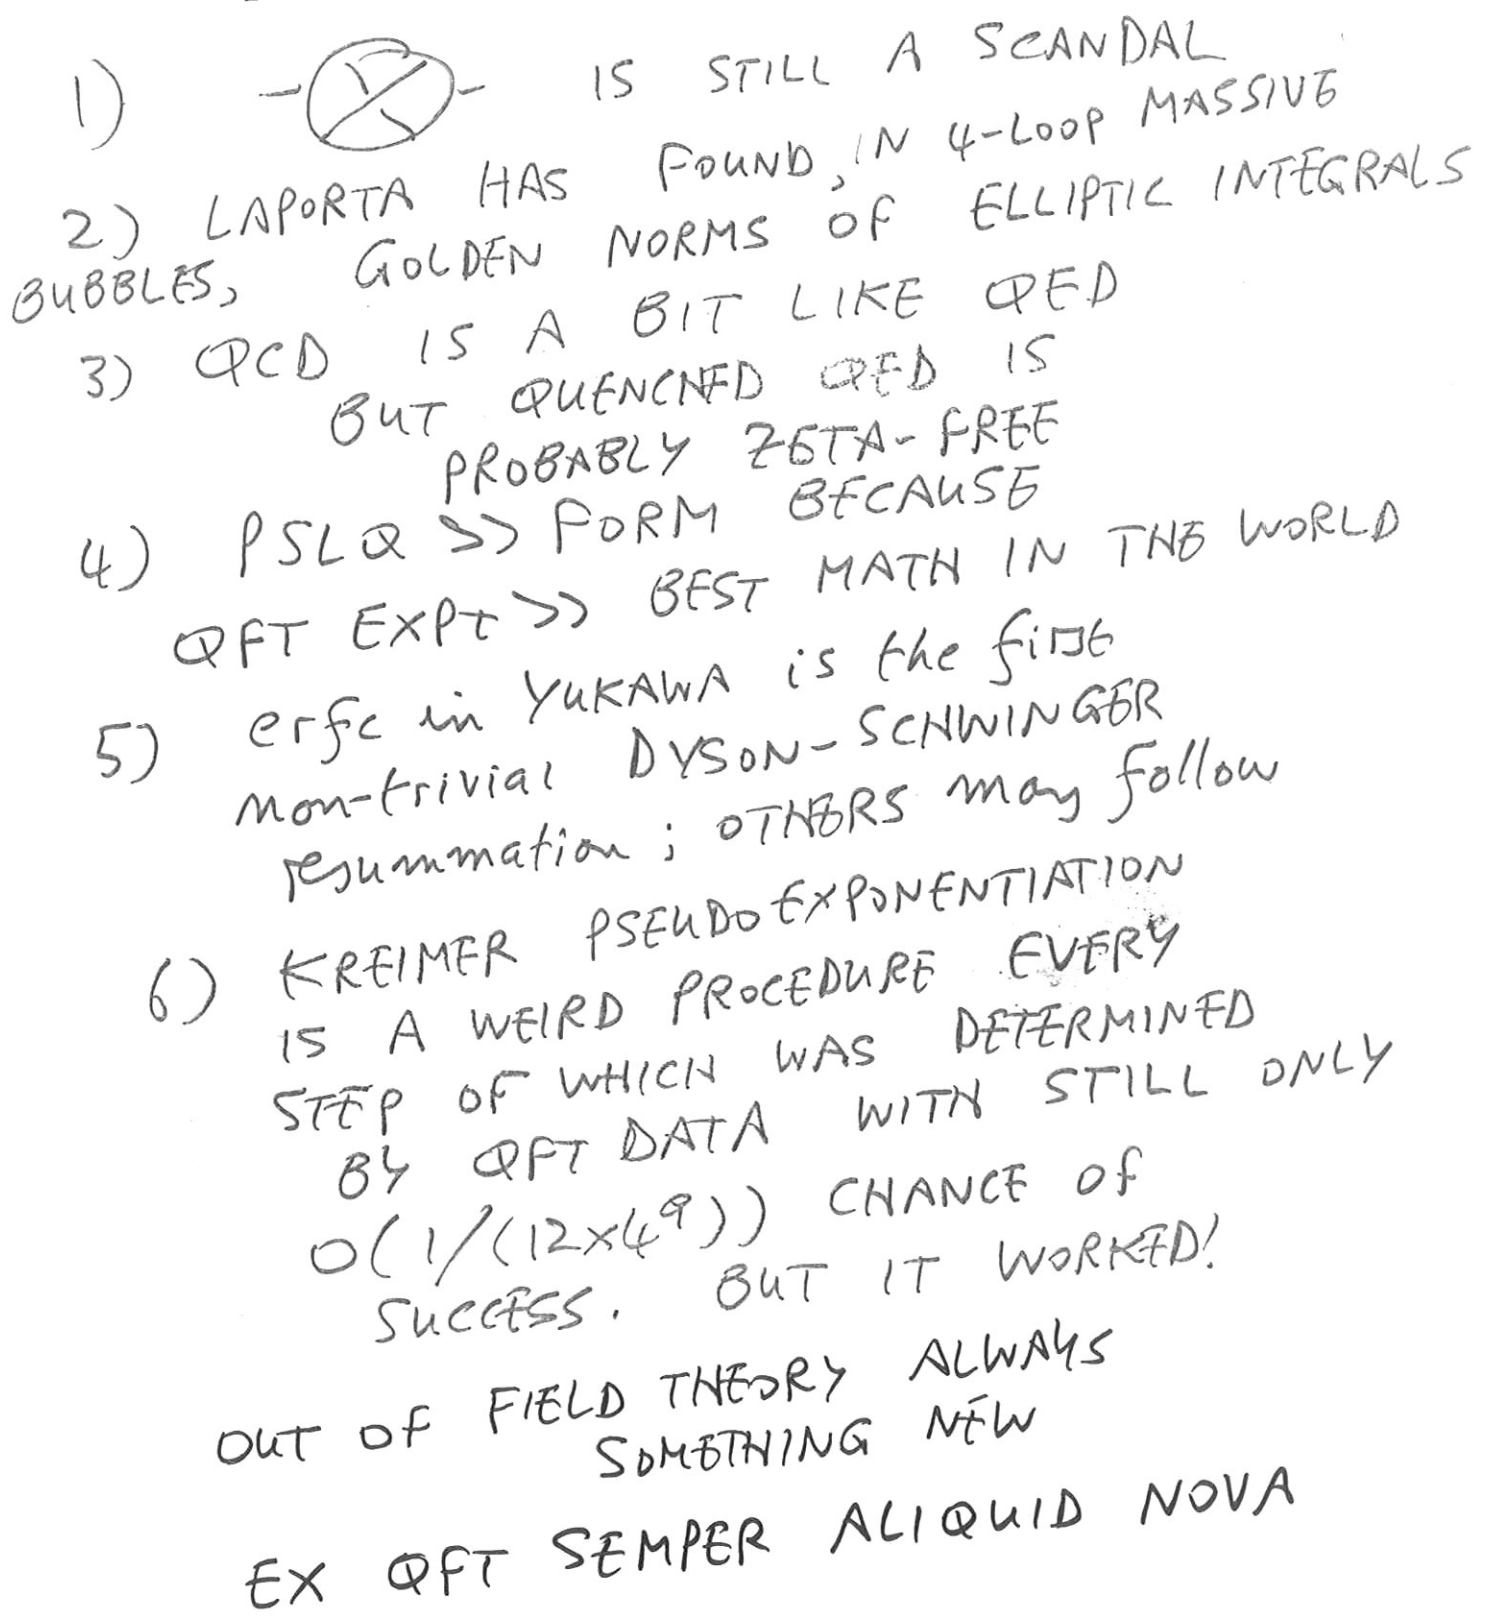 1) IS STILL A SCANDAL
2) LAPORTA HAS FOUND, IN 4-LOOP MASSIVE
BUBBLES, GOLDEN NORMS OF ELLIPTIC INTEGRALS
3) QCD IS A BIT LIKE QED
BUT QUENCHED QED IS
PROBABLY ZETA-FREE
4) PSLQ >> FORM BECAUSE
QFT EXPt >> BEST MATH IN THE WORLD
5) erfc in YUKAWA is the first
non-trivial DYSON-SCHWINGER
resummation; OTHERS may follow
6) KREIMER PSEUDOEXPONENTIATION
IS A WEIRD PROCEDURE EVERY
STEP OF WHICH WAS DETERMINED
BY QFT DATA WITH STILL ONLY
O(1/(12×4⁹)) CHANCE OF
SUCCESS. BUT IT WORKED!
OUT OF FIELD THEORY ALWAYS
SOMETHING NEW
EX QFT SEMPER ALIQUID NOVA